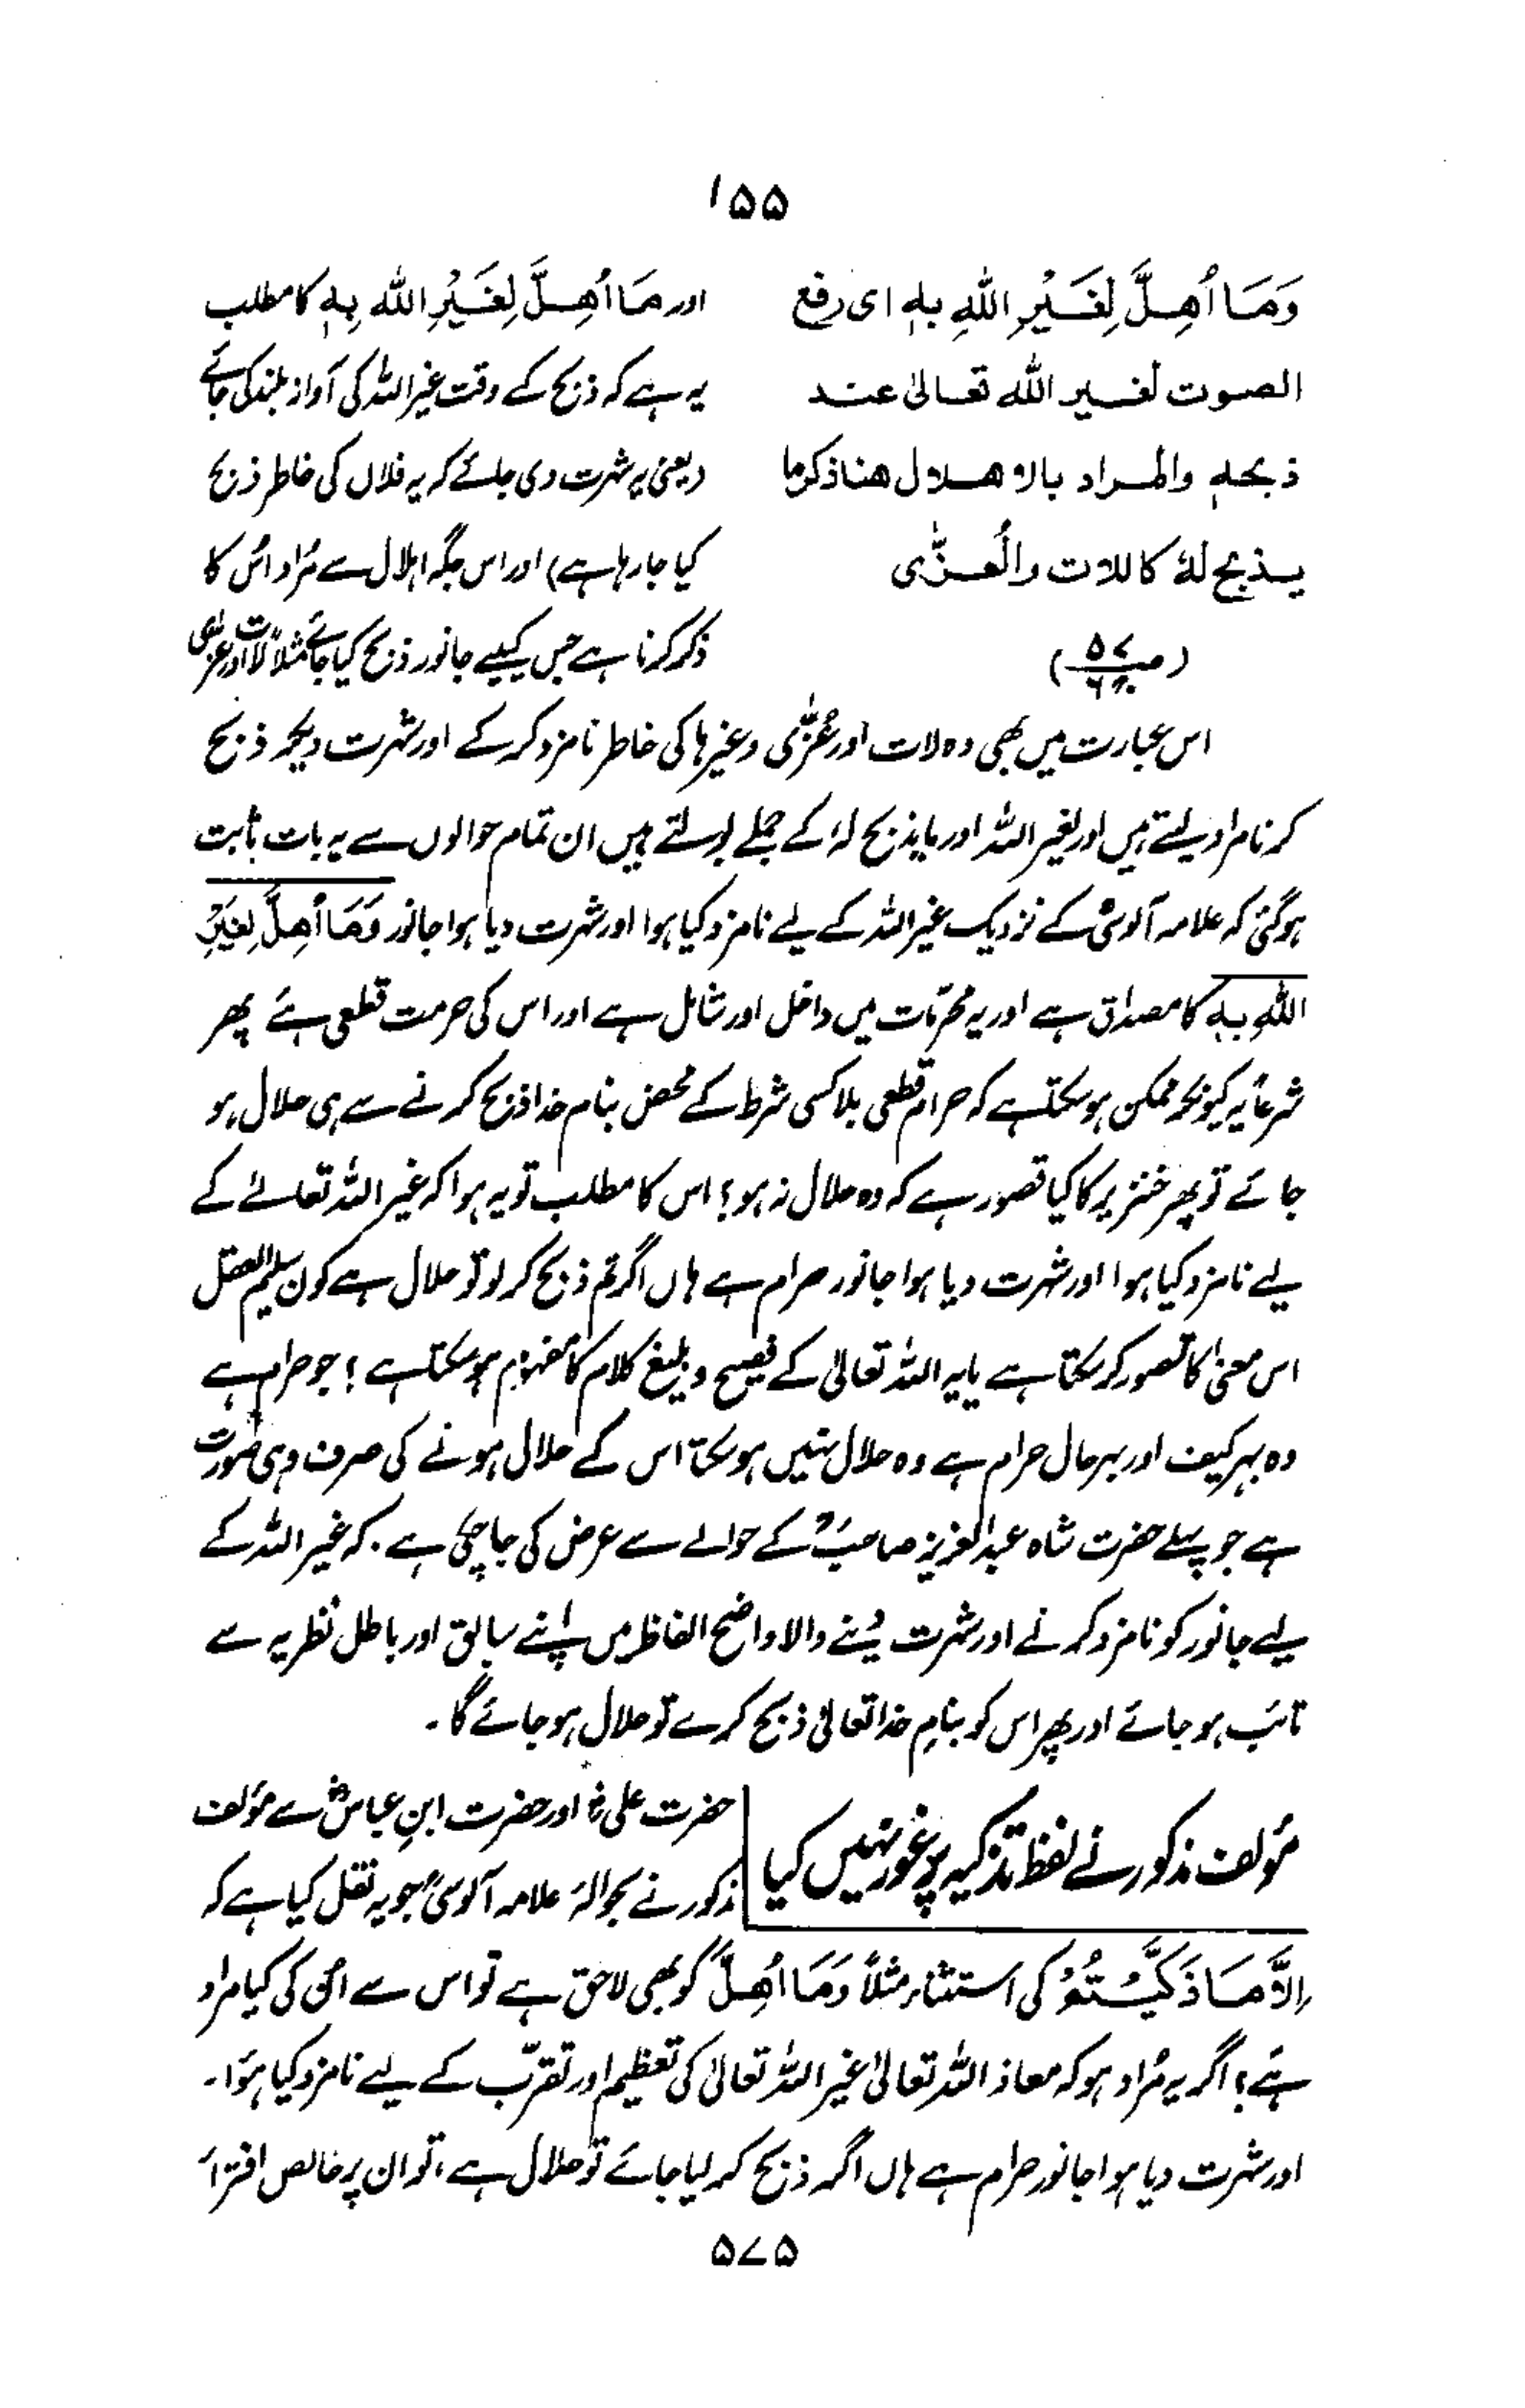 ۱۵۵
وَمَا اُهِلَّ لِغَيْرِ اللهِ بِهٖ ای رفع
الصوت لغير الله تعالىٰ عند
ذبحهٖ والمراد بالاهلال هنا ذكر ما
يذبح لهٗ كاللات والعُزّٰى
(ص ۵۷ ج ۶)
اور مَا اُهِلَّ لِغَيْرِ اللهِ بِهٖ کا مطلب
یہ ہے کہ ذبح کے وقت غیر اللہ کی آواز بلند کی جائے
(یعنی یہ شہرت دی جائے کہ یہ فلاں کی خاطر ذبح
کیا جا رہا ہے) اور اس جگہ اہلال سے مُراد اُس کا
ذکر کرنا ہے جس کیلیے جانور ذبح کیا جائے مثلاً لات اور عزّٰی
اس عبارت میں بھی وہ لات اور عُزّٰی وغیرہا کی خاطر نامزد کر کے اور شہرت دیکر ذبح
کرنا مراد لیتے ہیں اور لغیر اللہ اور ما یذبح لہٗ کے جملے بولتے ہیں ان تمام حوالوں سے یہ بات ثابت
ہوگئی کہ علامہ آلوسیؒ کے نزدیک غیر اللہ کے لیے نامزد کیا ہوا اور شہرت دیا ہوا جانور وَمَا اُهِلَّ لِغَيْرِ
اللهِ بِهٖ کا مصداق ہے اور یہ محرّمات میں داخل اور شامل ہے اور اس کی حرمت قطعی ہے پھر
شرعاً یہ کیونکر ممکن ہو سکتا ہے کہ حرام قطعی بلا کسی شرط کے محض بنام خدا ذبح کرنے سے ہی حلال ہو
جائے تو پھر خنزیر کا کیا قصور ہے کہ وہ حلال نہ ہو؟ اس کا مطلب تو یہ ہوا کہ غیر اللہ تعالےٰ کے
لیے نامزد کیا ہوا اور شہرت دیا ہوا جانور حرام ہے ہاں اگر تم ذبح کر لو تو حلال ہے کون سلیم العقل
اس معنیٰ کا تصور کر سکتا ہے یا یہ اللہ تعالیٰ کے فصیح و بلیغ کلام کا مفہوم ہو سکتا ہے؟ جو حرام ہے
وہ بہر کیف اور بہر حال حرام ہے وہ حلال نہیں ہو سکتا اس کے حلال ہونے کی صرف وہی صورت
ہے جو پہلے حضرت شاہ عبدالعزیز صاحبؒ کے حوالے سے عرض کی جا چکی ہے. کہ غیر اللہ کے
لیے جانور کو نامزد کرنے اور شہرت دینے والا واضح الفاظ میں اپنے سابق اور باطل نظریہ سے
تائب ہو جائے اور پھر اس کو بنامِ خدا تعالیٰ ذبح کرے تو حلال ہو جائے گا ۔
مؤلف مذکور نے لفظ تذکیہ پر غور نہیں کیا
حضرت علیؓ اور حضرت ابنِ عباسؓ سے مؤلف
مذکور نے بحوالہٗ علامہ آلوسیؒ جو یہ نقل کیا ہے کہ
اِلَّا مَا ذَكَّيْتُمْ کی استثناء مثلاً وَمَا اُهِلَّ کو بھی لاحق ہے تو اس سے اُن کی کیا مراد
ہے؟ اگر یہ مُراد ہو کہ معاذ اللہ تعالیٰ غیر اللہ تعالیٰ کی تعظیم اور تقرّب کے لیے نامزد کیا ہوا۔
اور شہرت دیا ہوا جانور حرام ہے ہاں اگر ذبح کر لیا جائے تو حلال ہے، تو ان پر خالص افتراء
۵۷۵